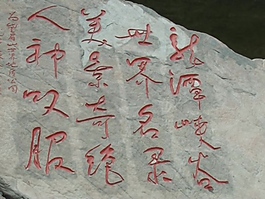 龙潭峡谷
世界名录
美景奇绝
人神叹服